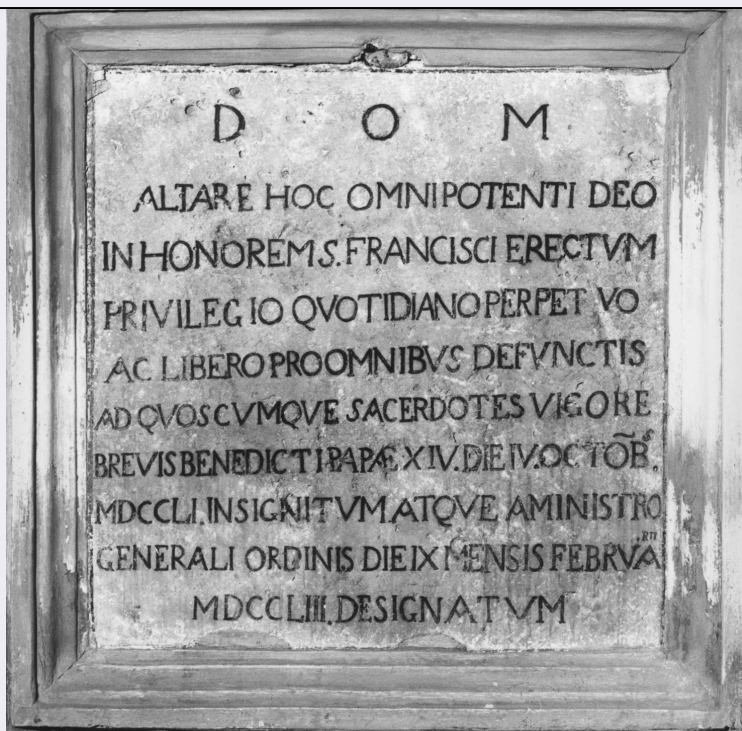 D O M
ALTARE HOC OMNIPOTENTI DEO
IN HONOREM S. FRANCISCI ERECTVM
PRIVILEGIO QVOTIDIANO PERPETVO
AC LIBERO PRO OMNIBVS DEFVNCTIS
AD QVOSCVMQVE SACERDOTES VIGORE
BREVIS BENEDICTI PAPÆ XIV. DIE IV. OCTOB̃.ˢ
MDCCLI. INSIGNITVM. ATQVE A MINISTRO
GENERALI ORDINIS DIE IX MENSIS FEBRVARII
MDCCLIII. DESIGNATVM